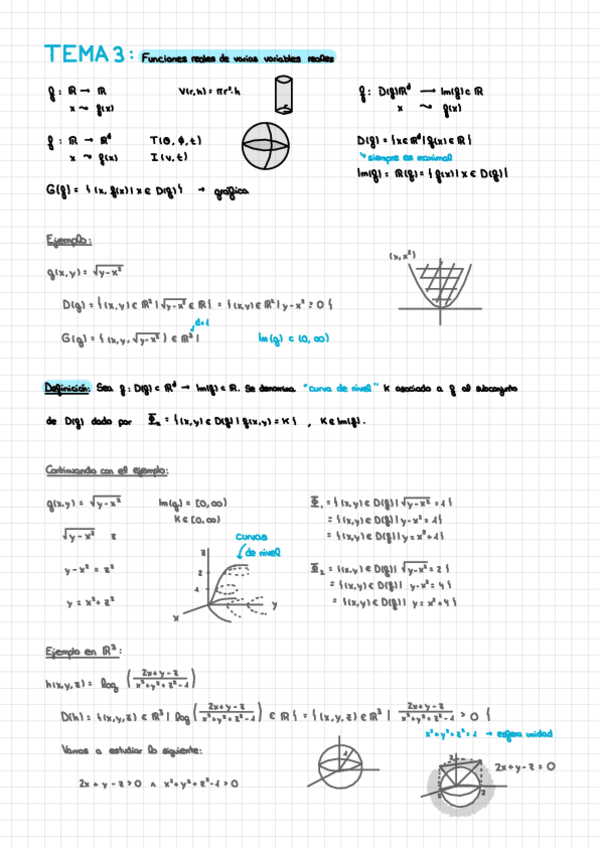 TEMA 3: Funciones reales de varias variables reales
f: ℝ → ℝ
x ⤳ f(x)
V(r,h) = πr²·h
f: D(f)ℝᵈ → Im(f) ⊂ ℝ
x ⤳ f(x)
f: ℝ → ℝᵈ
x ⤳ f(x)
T(Θ, ϕ, t)
I(v, t)
D(f) = {x ∈ ℝᵈ | f(x) ∈ ℝ}
↳ siempre es maximal
Im(f) = R(f) = {f(x) | x ∈ D(f)}
G(f) = {(x, f(x)) | x ∈ D(f)} → gráfica
Ejemplo:
g(x,y) = √(y-x²)
(x, x²)
D(g) = {(x,y) ∈ ℝ² | √(y-x²) ∈ ℝ} = {(x,y) ∈ ℝ² | y-x² ≥ 0}
G(g) = {(x, y, √(y-x²)) ∈ ℝ³}
d+1
Im(g) ⊂ [0, ∞)
Definición: Sea f: D(f) ⊂ ℝᵈ → Im(f) ⊂ ℝ. Se denomina "curva de nivel" K asociado a f al subconjunto
de D(f) dado por Φₖ = {(x,y) ∈ D(f) | f(x,y) = K}, K ∈ Im(f).
Continuando con el ejemplo:
g(x,y) = √(y-x²)
Im(g) = [0, ∞)
K ∈ [0, ∞)
√(y-x²) z
y-x² = z²
y = x² + z²
curvas
de nivel
z
2
1
x
y
Φ₁ = {(x,y) ∈ D(g) | √(y-x²) = 1}
= {(x,y) ∈ D(g) | y-x² = 1}
= {(x,y) ∈ D(g) | y = x²+1}
Φ₂ = {(x,y) ∈ D(g) | √(y-x²) = 2}
= {(x,y) ∈ D(g) | y-x² = 4}
= {(x,y) ∈ D(g) | y = x²+4}
Ejemplo en ℝ³:
h(x,y,z) = log ((2x+y-z)/(x²+y²+z²-1))
D(h) = {(x,y,z) ∈ ℝ³ | log((2x+y-z)/(x²+y²+z²-1)) ∈ ℝ} = {(x,y,z) ∈ ℝ³ | (2x+y-z)/(x²+y²+z²-1) > 0}
x²+y²+z²=1 → esfera unidad
Vamos a estudiar lo siguiente:
2x + y - z > 0 ∧ x²+y²+z²-1 > 0
2x+y-z = 0